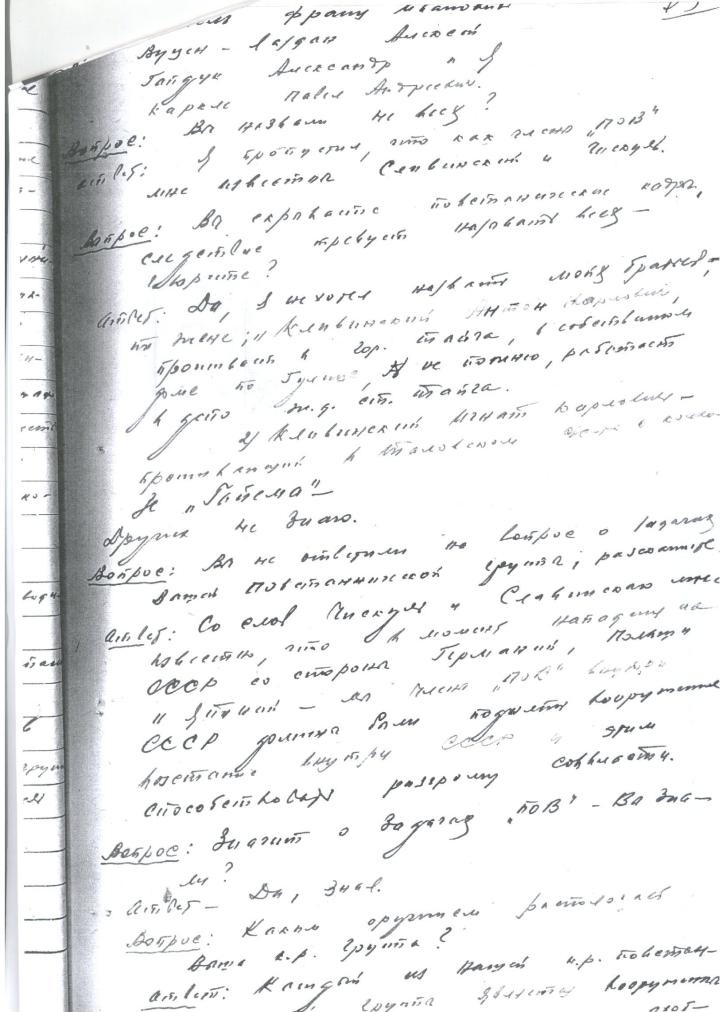 Франц
Вуцен-Гардан Алексей
Гайдук Александр и я
Павел Андреевич.
Вопрос: Вы назвали не всех?
Ответ: Я пропустил, что как член „ПОВ“
мне известны Славинский и Чискуль.
Вопрос: Вы скрываете повстанческие кадры,
следствие требует назвать всех –
говорите?
Ответ: Да, я не хотел назвать моих братьев
по жене; 1/ Кливинский Антон Карлович,
проживает в гор. Тайга, в собственном
доме по улице, № не помню, работает
в депо ж.д. ст. Тайга.
2/ Кливинский Игнат Карлович –
проживающий в Таловском в колхо-
зе „Гайема“ –
Других не знаю.
Вопрос: Вы не ответили на вопрос о задачах
Вашей повстанческой группы; расскажите
Ответ: Со слов Чискуля и Славинского мне
известно, что в момент нападения на
СССР со стороны Германии, Польши
и Японии – мы члены „ПОВ“ внутри
СССР должны были поднять вооруженное
восстание внутри СССР и этим
способствовать разгрому совласти.
Вопрос: Значит о задачах „ПОВ“ – Вы зна-
ли?
Ответ – Да, знал.
Вопрос: Каким оружием располагает
Ваша к.р. группа?
Ответ: Каждый из нашей к.р. повстан-
группы является вооружен